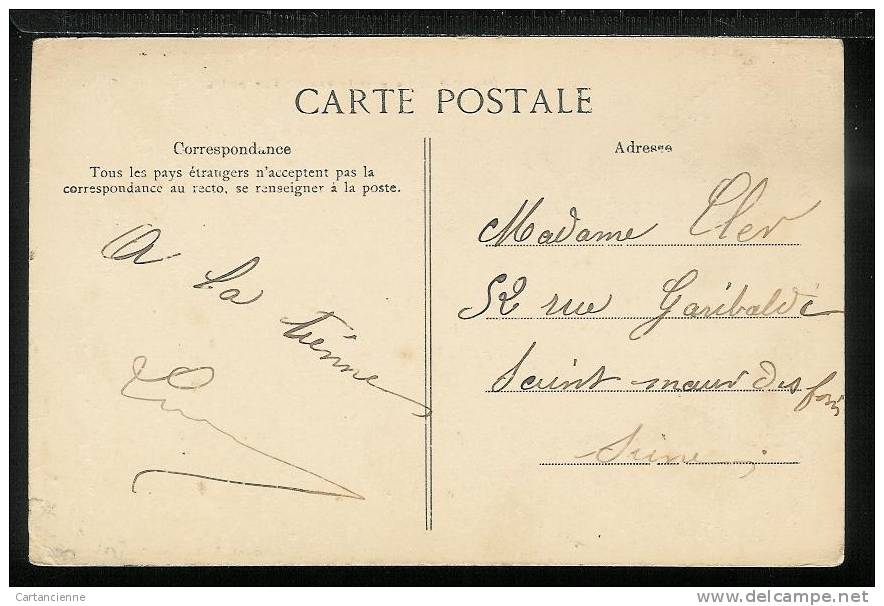 CARTE POSTALE
Correspondance
Tous les pays étrangers n'acceptent pas la
correspondance au recto, se renseigner à la poste.
A
la
tienne
Adresse
Madame Cler
52 rue Garibaldi
Saint maur des fossés
Seine
Cartancienne
delcampe.net